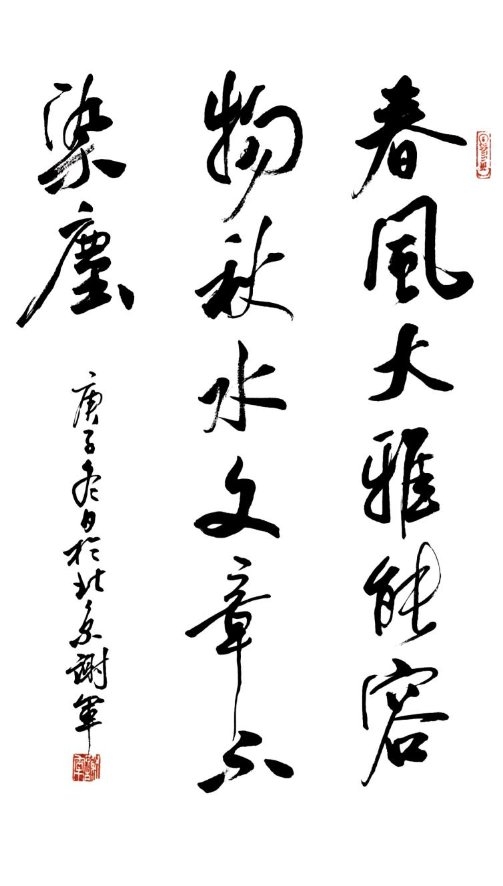 春風大雅能容
物秋水文章不
染塵
庚子冬日於北京謝軍